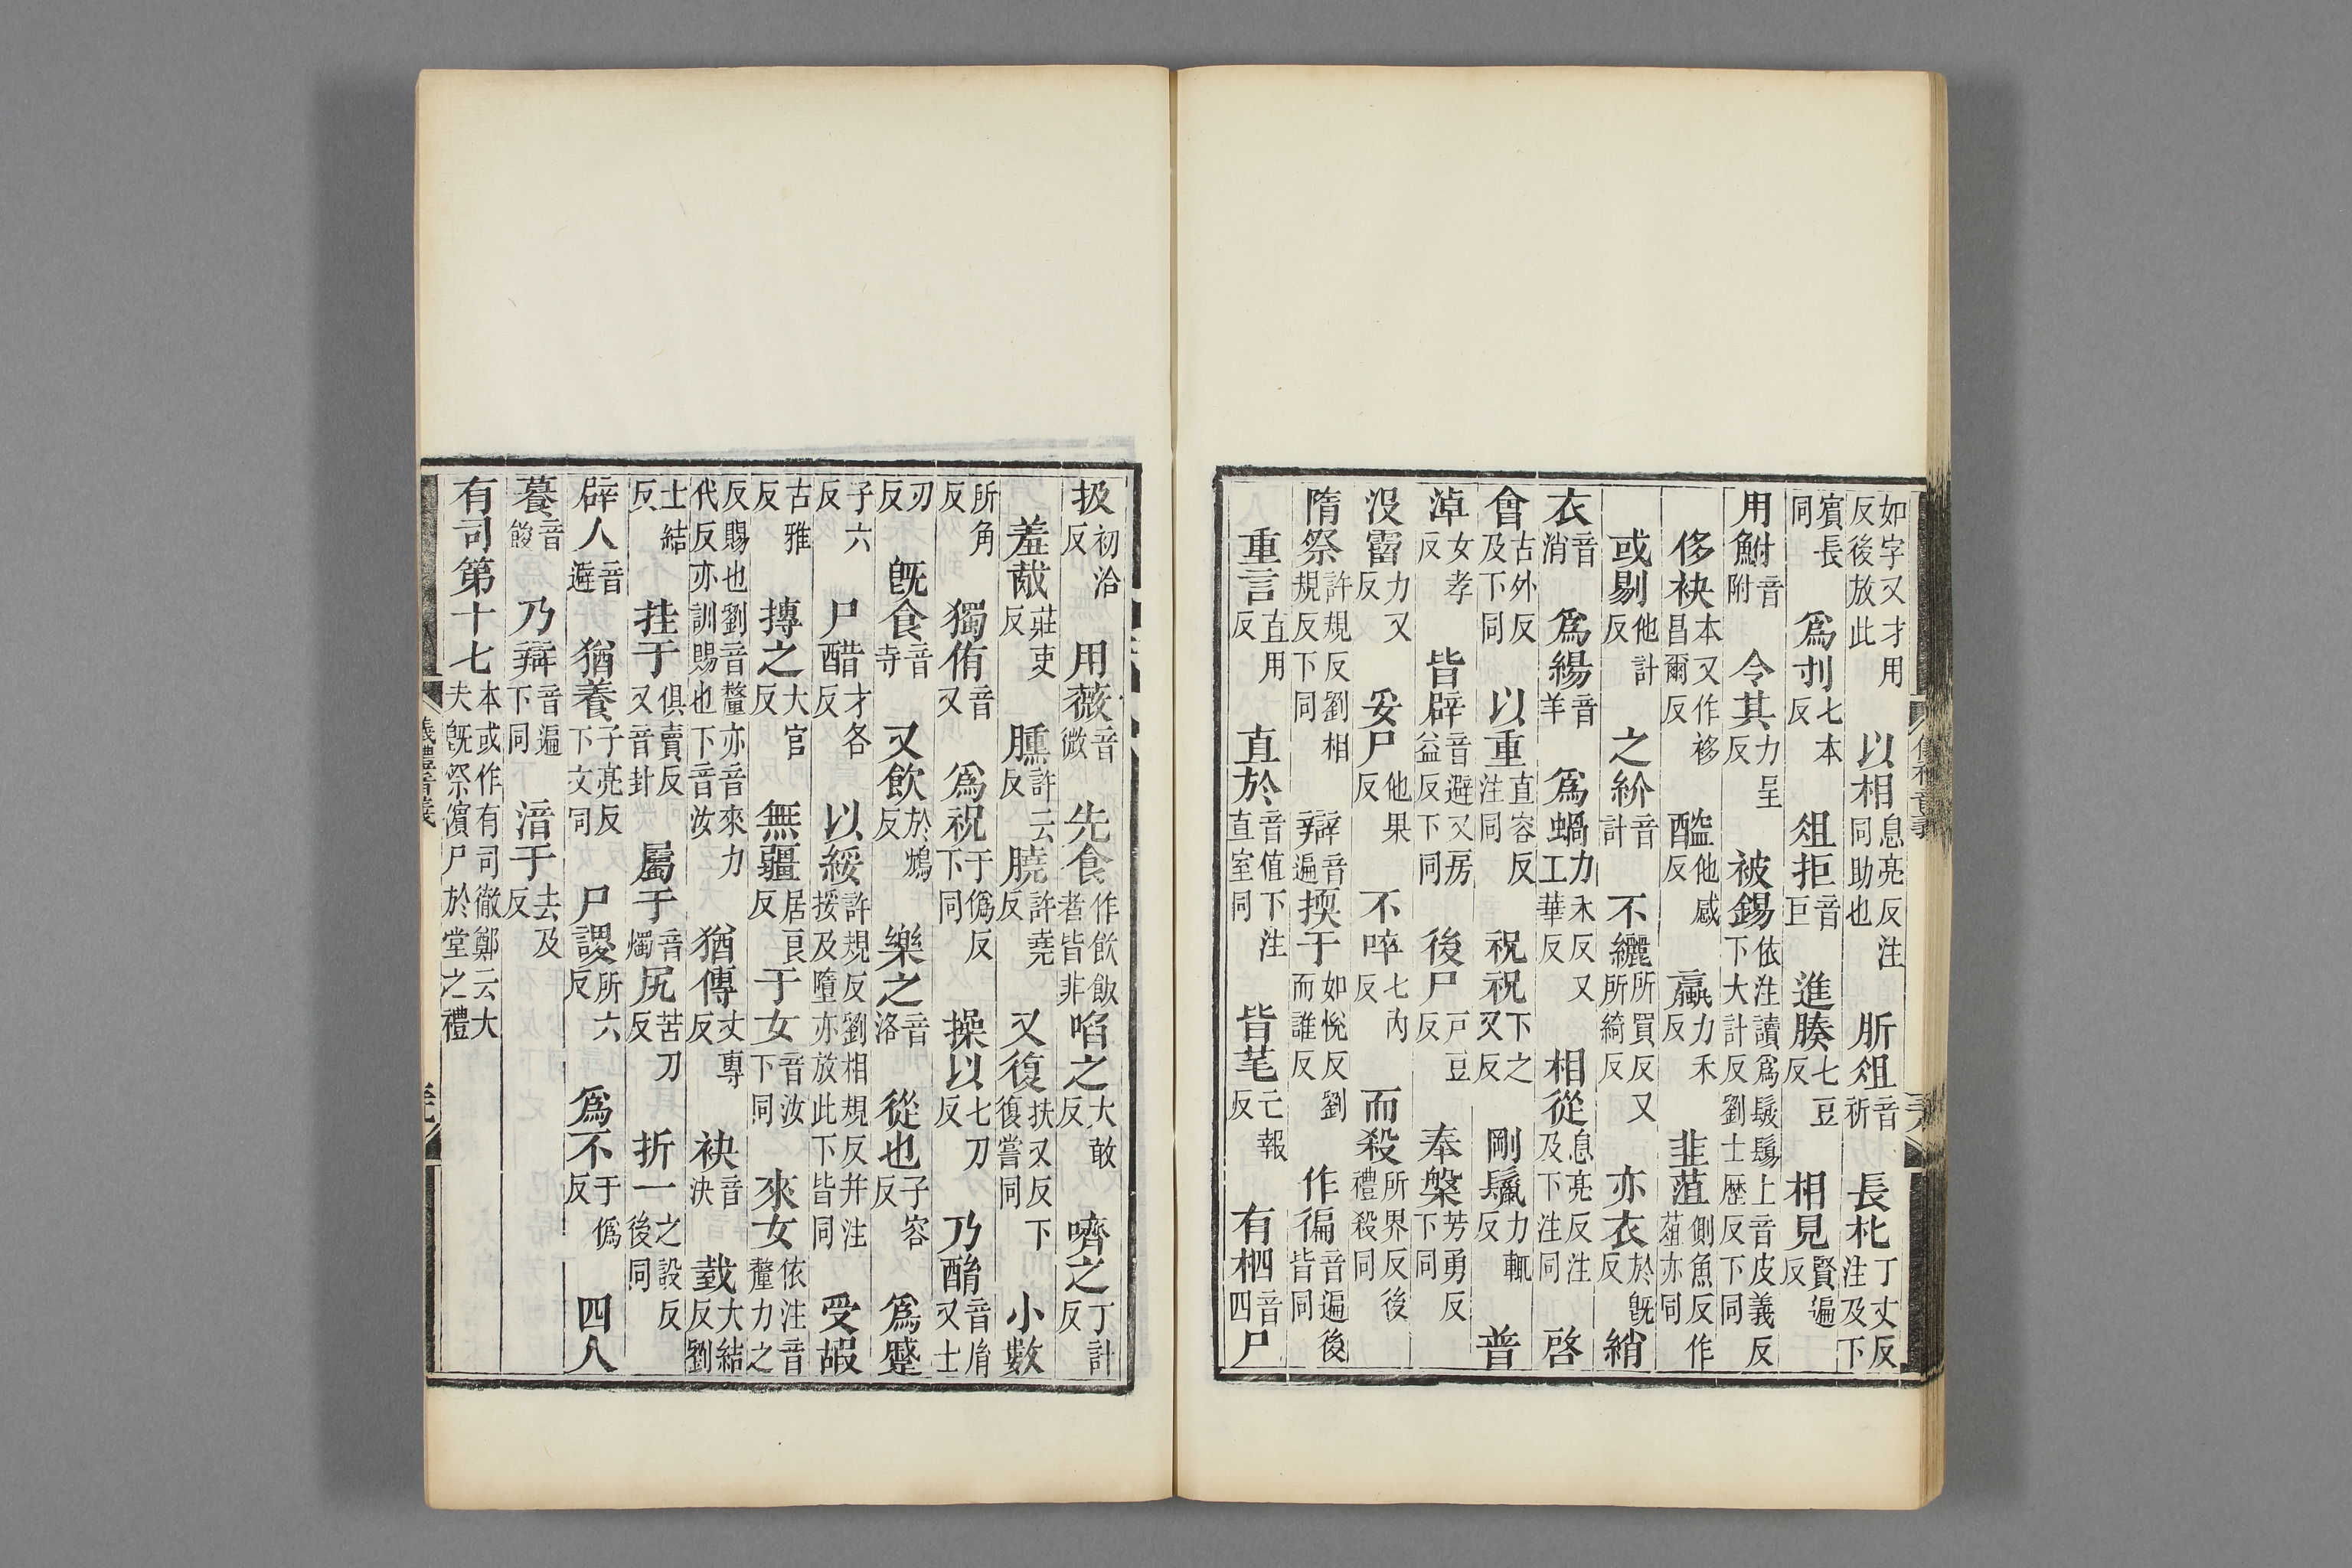 如字又才用反後放此 以相息亮反注同助也 肵俎音祈 長朼丁丈反注及下
賓長同 爲刌七本反 俎拒音巨 進腠七豆反 相見賢遍反
用鮒音附 令其力呈反 被錫依注讀爲髲鬄上音皮義反下大計反劉士歷反下同
侈袂本又作袳昌爾反 醓他感反 蠃力禾反 韭菹側魚反作葅亦同
或剔他計反 之紒音計 不纚所買反又所綺反 亦衣於旣反 綃
衣音消 爲緆音羊 爲蝸力禾反又工華反 相從息亮反注及下注同 啓
會古外反及下同 以重直容反注同 祝祝下之又反 剛鬣力輒反 普
淖女孝反 皆辟音避又房益反下同 後尸戸豆反 奉槃芳勇反下同
沒霤力又反 妥尸他果反 不啐七內反 而殺所界反後禮殺同
隋祭許規反劉相規反下同 辯音遍 擩于如悅反劉而誰反 作徧音遍後皆同
重言直用反 直於音值下注直室同 皆芼亡報反 有柶音四 尸
扱初洽反 用薇音微 先食作飲飯者皆非 啗之大敢反 嚌之丁計反
羞胾莊吏反 臐許云反 膮許堯反 又復扶又反下復嘗同 小數
所角反 獨侑音又 爲祝于僞反下同 操以七刀反 乃酳音胤又士
刃反 旣食音寺 又飲於鴆反 樂之音洛 從也子容反 爲蹙
子六反 尸醋才各反 以綏許規反劉相規反并注挼及墮亦放此下皆同 受嘏
古雅反 摶之大官反 無疆居良反 于女音汝下同 來女依注音釐力之
反賜也劉音釐亦音來力代反亦訓賜也下音汝 猶傳丈專反 袂音決 臷大結反劉
士結反 挂于俱賣反又音封 屬于音燭 尻苦刀反 折一之設反後同
辟人音避 猶養子亮反下文同 尸謖所六反 爲不于僞反 四人
䭕音餕 乃辯音遍下同 湆于去及反
有司第十七本或作有司徹鄭云大夫旣祭儐尸於堂之禮